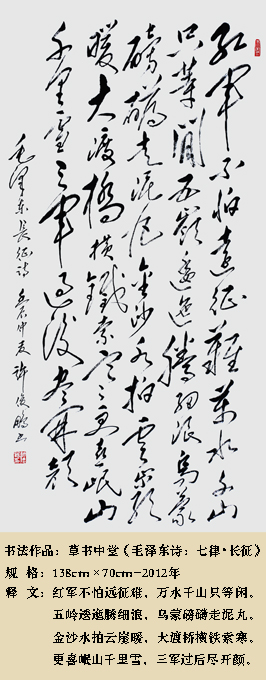 紅軍不怕遠征難萬水千山
只等閒五嶺逶迤騰細浪烏蒙
磅礴走泥丸金沙水拍雲崖
暖大渡橋橫鐵索寒更喜岷山
千里雪三軍過後盡開顏
毛澤東長征詩 壬辰中夏 許俊 書
书法作品：草书中堂（毛泽东诗：七律·长征）
规 格：138cm×70cm-2012年
释 文：红军不怕远征难，万水千山只等闲。
五岭逶迤腾细浪，乌蒙磅礴走泥丸。
金沙水拍云崖暖，大渡桥横铁索寒。
更喜岷山千里雪，三军过后尽开颜。